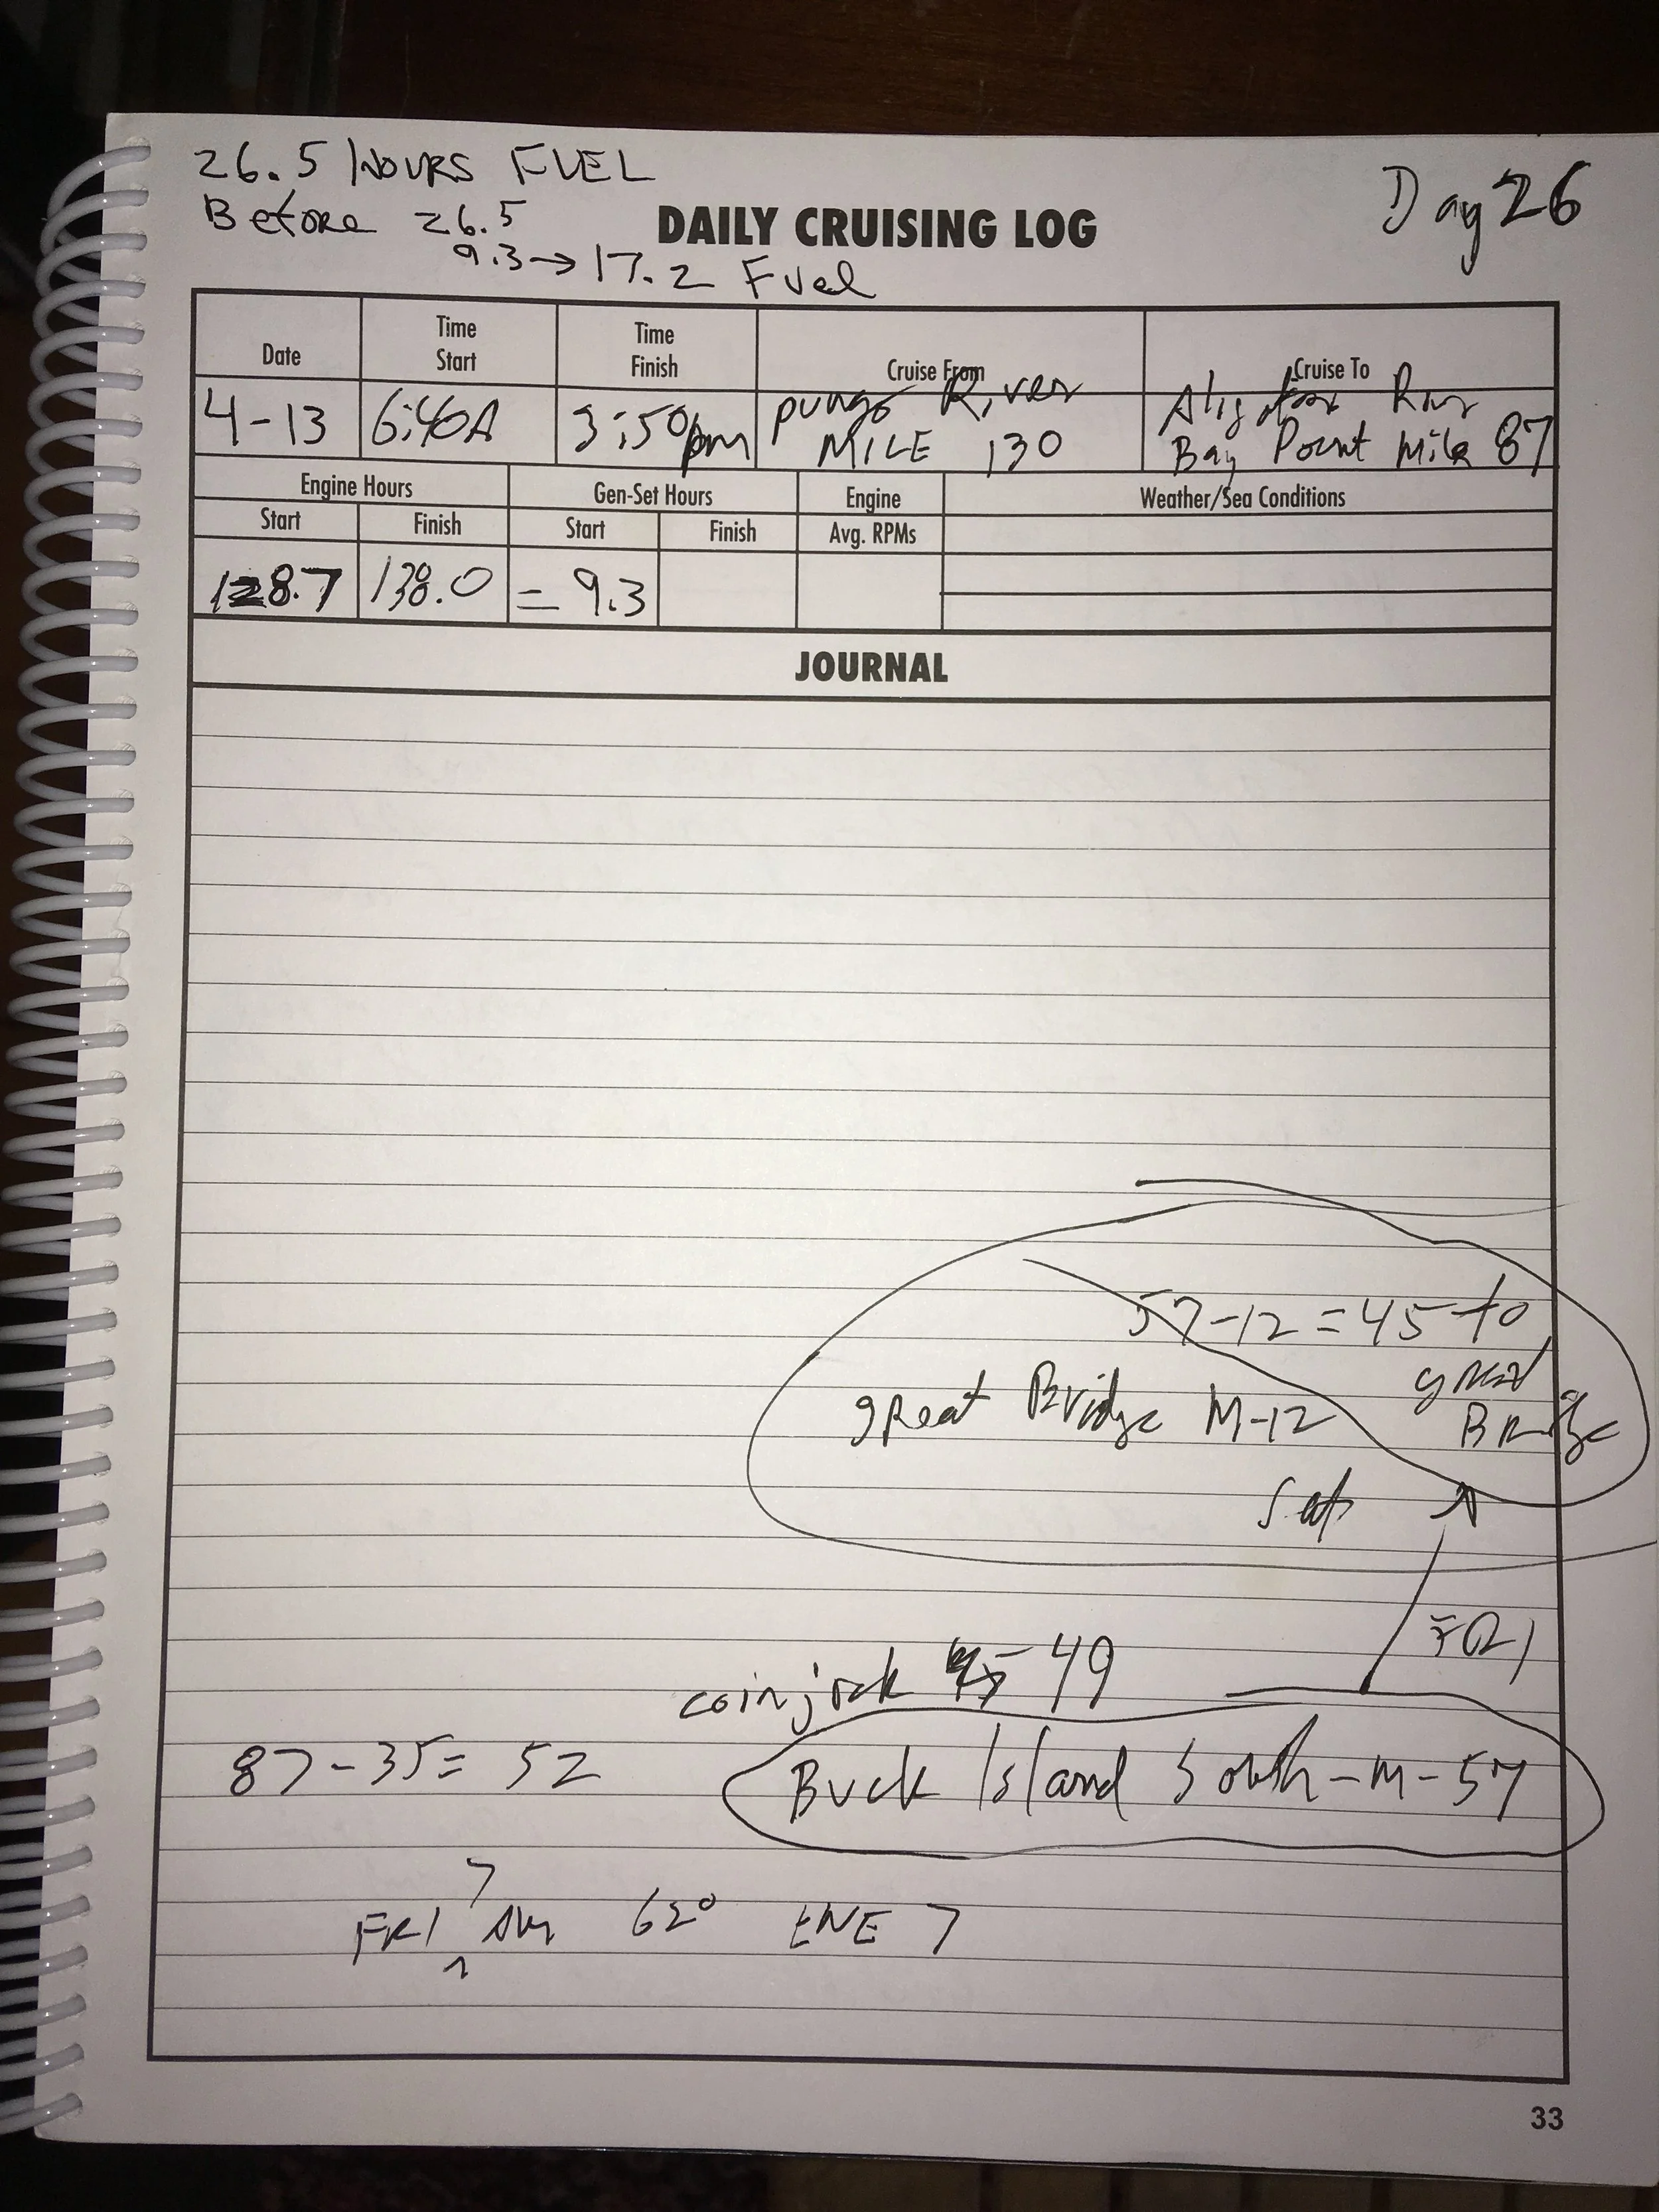 26.5 HOURS FUEL
Day 26
Before 26.5
DAILY CRUISING LOG
9.3→17.2 Fuel
Date Time Start Time Finish Cruise From Cruise To
4-13 6:40A 3:50pm pungo River MILE 130 Aligator River Bay Point Mile 87
Engine Hours Gen-Set Hours Engine Weather/Sea Conditions
Start Finish Start Finish Avg. RPMs
128.7 138.0 = 9.3
JOURNAL
57-12=45 to
great Bridge M-12 great
Bridge
FRI
coinjock 49
87-35= 52 Buck Island South-M-57
7
FRI AM 62° ENE 7
33